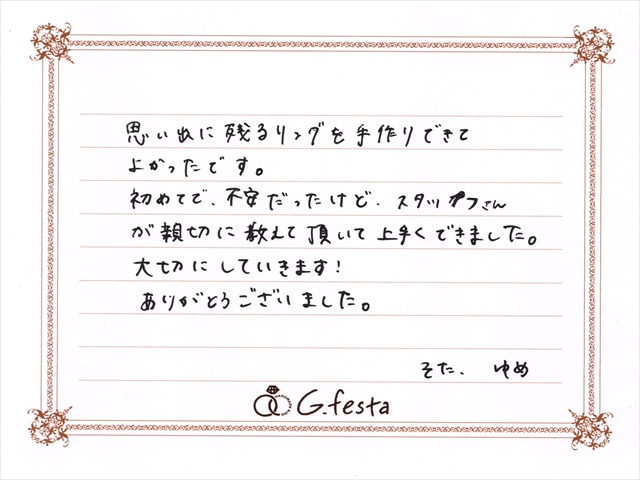 思い出に残るリングを手作りできて
よかったです。
初めてで、不安だったけど、スタッフさん
が親切に教えて頂いて上手くできました。
大切にしていきます!
ありがとうございました。
そた、ゆめ
G.festa